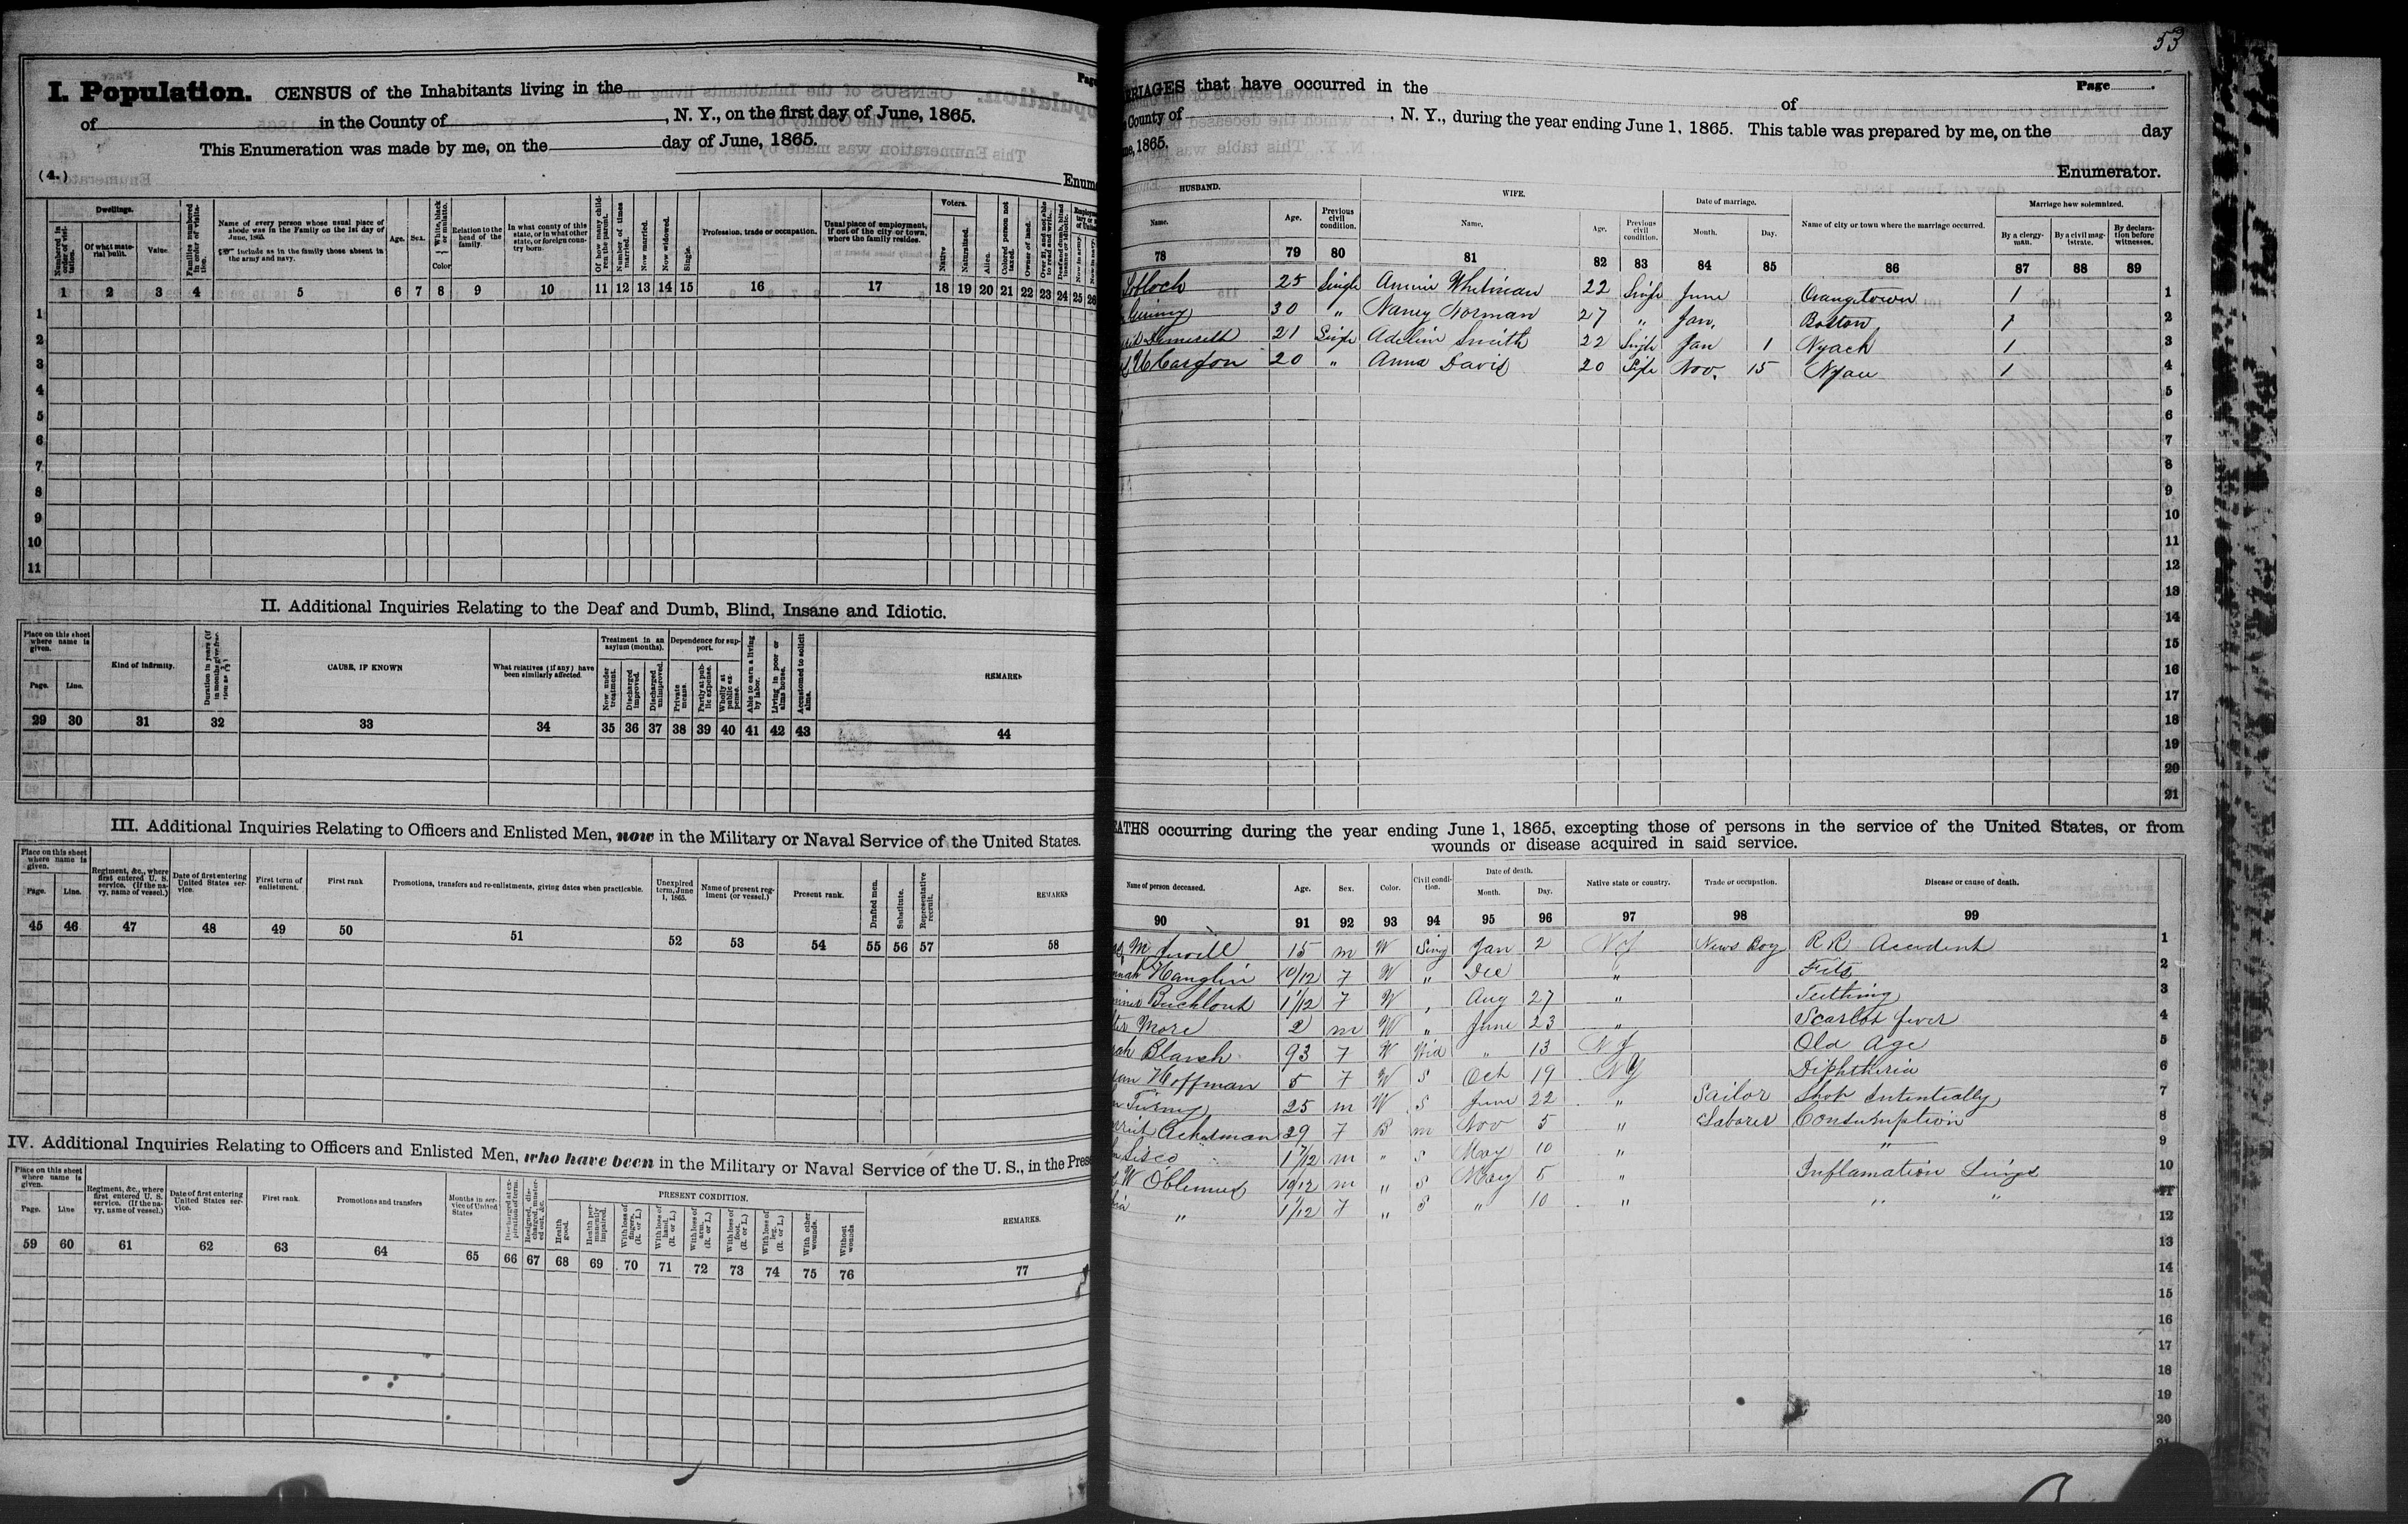 I. Population. CENSUS of the Inhabitants living in the
of in the County of , N. Y., on the first day of June, 1865.
This Enumeration was made by me, on the day of June, 1865.
(4.)
Dwellings.
Numbered in order of visitation.
Of what material built.
Value.
Families numbered in order of visitation.
Name of every person whose usual place of abode was in the Family on the 1st day of June, 1865.
Include as in the family those absent in the army and navy.
Age.
Sex.
White, black or mulatto.
Color
Relation to the head of the family.
In what county of this state, or in what other state, or foreign country born.
Of how many children the parent.
Number of times married.
Now married.
Now widowed.
Single.
Profession, trade or occupation.
Usual place of employment, if out of the city or town, where the family resides.
Voters.
Native
Naturalized.
Alien.
Colored person not taxed.
Owner of land.
Over 21, and not able to read and write.
Deaf and dumb, blind insane or idiotic.
1 2 3 4 5 6 7 8 9 10 11 12 13 14 15 16 17 18 19 20 21 22 23 24 25 26
1
2
3
4
5
6
7
8
9
10
11
II. Additional Inquiries Relating to the Deaf and Dumb, Blind, Insane and Idiotic.
Place on this sheet where name is given.
Page. Line.
Kind of infirmity.
CAUSE, IF KNOWN
What relatives (if any) have been similarly affected.
Treatment in an asylum (months).
Now under treatment.
Discharged improved.
Discharged unimproved.
Dependence for support.
Private means.
Partly at public expense.
Wholly at public expense.
Able to earn a living by labor.
Living in poor or alms house.
Accustomed to solicit alms.
REMARKS
29 30 31 32 33 34 35 36 37 38 39 40 41 42 43 44
III. Additional Inquiries Relating to Officers and Enlisted Men, now in the Military or Naval Service of the United States.
Place on this sheet where name is given.
Page. Line.
Regiment, &c., where first entered U. S. service. (If the navy, name of vessel.)
Date of first entering United States service.
First term of enlistment.
First rank
Promotions, transfers and re-enlistments, giving dates when practicable.
Unexpired term, June 1, 1865.
Name of present regiment (or vessel.)
Present rank.
Drafted men.
Substitute.
Representative recruit.
REMARKS
45 46 47 48 49 50 51 52 53 54 55 56 57 58
IV. Additional Inquiries Relating to Officers and Enlisted Men, who have been in the Military or Naval Service of the U. S., in the Prese
Place on this sheet where name is given.
Page. Line
Regiment, &c., where first entered U. S. service. (If the navy, name of vessel.)
Date of first entering United States service.
First rank.
Promotions and transfers
Months in service of United States
Discharged at expiration of term.
Resigned, discharged, mustered out, &c.
PRESENT CONDITION.
Health good.
Health permanently impaired.
With loss of fingers. (R. or L.)
With loss of hand. (R. or L.)
With loss of arm. (R. or L.)
With loss of foot. (R. or L.)
With loss of leg. (R. or L.)
With other wounds.
Without wounds.
REMARKS.
59 60 61 62 63 64 65 66 67 68 69 70 71 72 73 74 75 76 77
53
RRIAGES that have occurred in the of Page
County of , N. Y., during the year ending June 1, 1865. This table was prepared by me, on the day
ne, 1865.
Enumerator.
HUSBAND. WIFE. Date of marriage. Marriage how solemnized.
Name. Age. Previous civil condition. Name. Age. Previous civil condition. Month. Day. Name of city or town where the marriage occurred. By a clergyman. By a civil magistrate. By declaration before witnesses.
78 79 80 81 82 83 84 85 86 87 88 89
25 Single Whitman 22 Single June Orangetown 1 1
30 " Nancy Norman 27 " Jan. Boston 1 2
21 Single Adeline Smith 22 Single Jan 1 Nyack 1 3
20 " Anna Davis 20 Nov. 15 1 4
5
6
7
8
9
10
11
12
13
14
15
16
17
18
19
20
21
EATHS occurring during the year ending June 1, 1865, excepting those of persons in the service of the United States, or from
wounds or disease acquired in said service.
Name of person deceased. Age. Sex. Color. Civil condition. Date of death. Month. Day. Native state or country. Trade or occupation. Disease or cause of death.
90 91 92 93 94 95 96 97 98 99
15 m W Sing Jan 2 News Boy RR Accident 1
10/12 F W " Dec " Fits 2
1 1/12 F W " Aug 27 " Teething 3
More 2 m W " June 23 " Scarlet fever 4
Blauch 93 F W Wid " 13 NJ Old Age 5
Hoffman 5 F W S Oct 19 NY Diphtheria 6
25 m W S June 22 " Sailor Shot 7
Ackerman 29 F B m Nov 5 " Laborer Consumption 8
Sisco 1 7/12 m " S May 10 " " 9
W Oblenus 10/12 m " S May 5 " Inflamation Lungs 10
" 1 1/12 F " S " 10 " " " 11
12
13
14
15
16
17
18
19
20
21